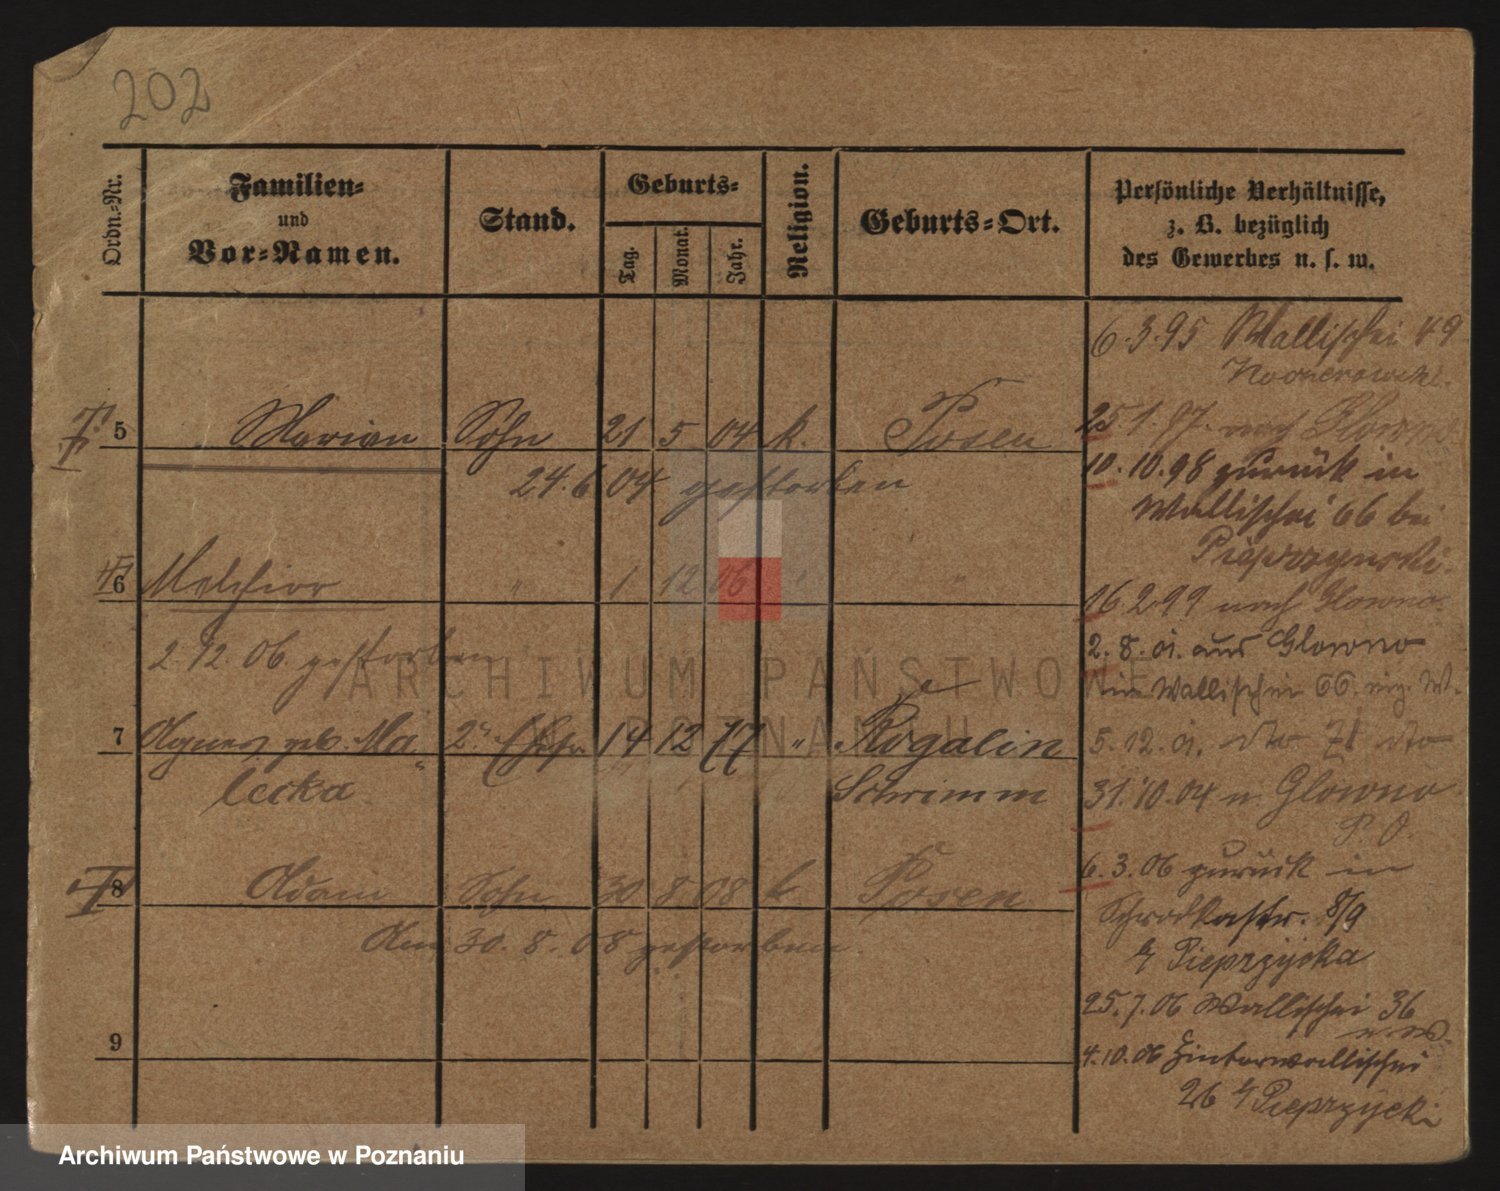 202
Ordn.-Nr.
Familien-
und
Vor-Namen.
Stand.
Geburts-
Tag.
Monat.
Jahr.
Religion.
Geburts-Ort.
Persönliche Verhältnisse,
z. B. bezüglich
des Gewerbes u. s. w.
5 Marian Sohn 21 5 04 k. Posen
24.6 04 gestorben
6 Melchior " 1 12 06 " "
2.12.06. gestorben
7 Agnes geb. Ma 2te Ehefr 14 12 77 " Rogalin
lecka Schrimm
8 Adam Sohn 30 8 08 k Posen
Am 30. 8. 08 gestorben
9
6.3.95 Wallischei 49
25 1. 97. nach Glowno
10. 10.98 zurück in
Wallischei 66 bei
Pieprzynski.
16 2 99 nach Glowno.
2. 8. 01. aus Glowno
in Wallischei 66.
5.12.01. dto 71 dto
31.10.04 n. Glowno
P. O.
6.3.06 zurück in
Schrodkastr. 8/9
Pieprzycka
25.7.06 Wallischei 36
4.10.06 Hinterwallischei
26 Pieprzycki
ARCHIWUM PAŃSTWOWE
W POZNANIU
Archiwum Państwowe w Poznaniu